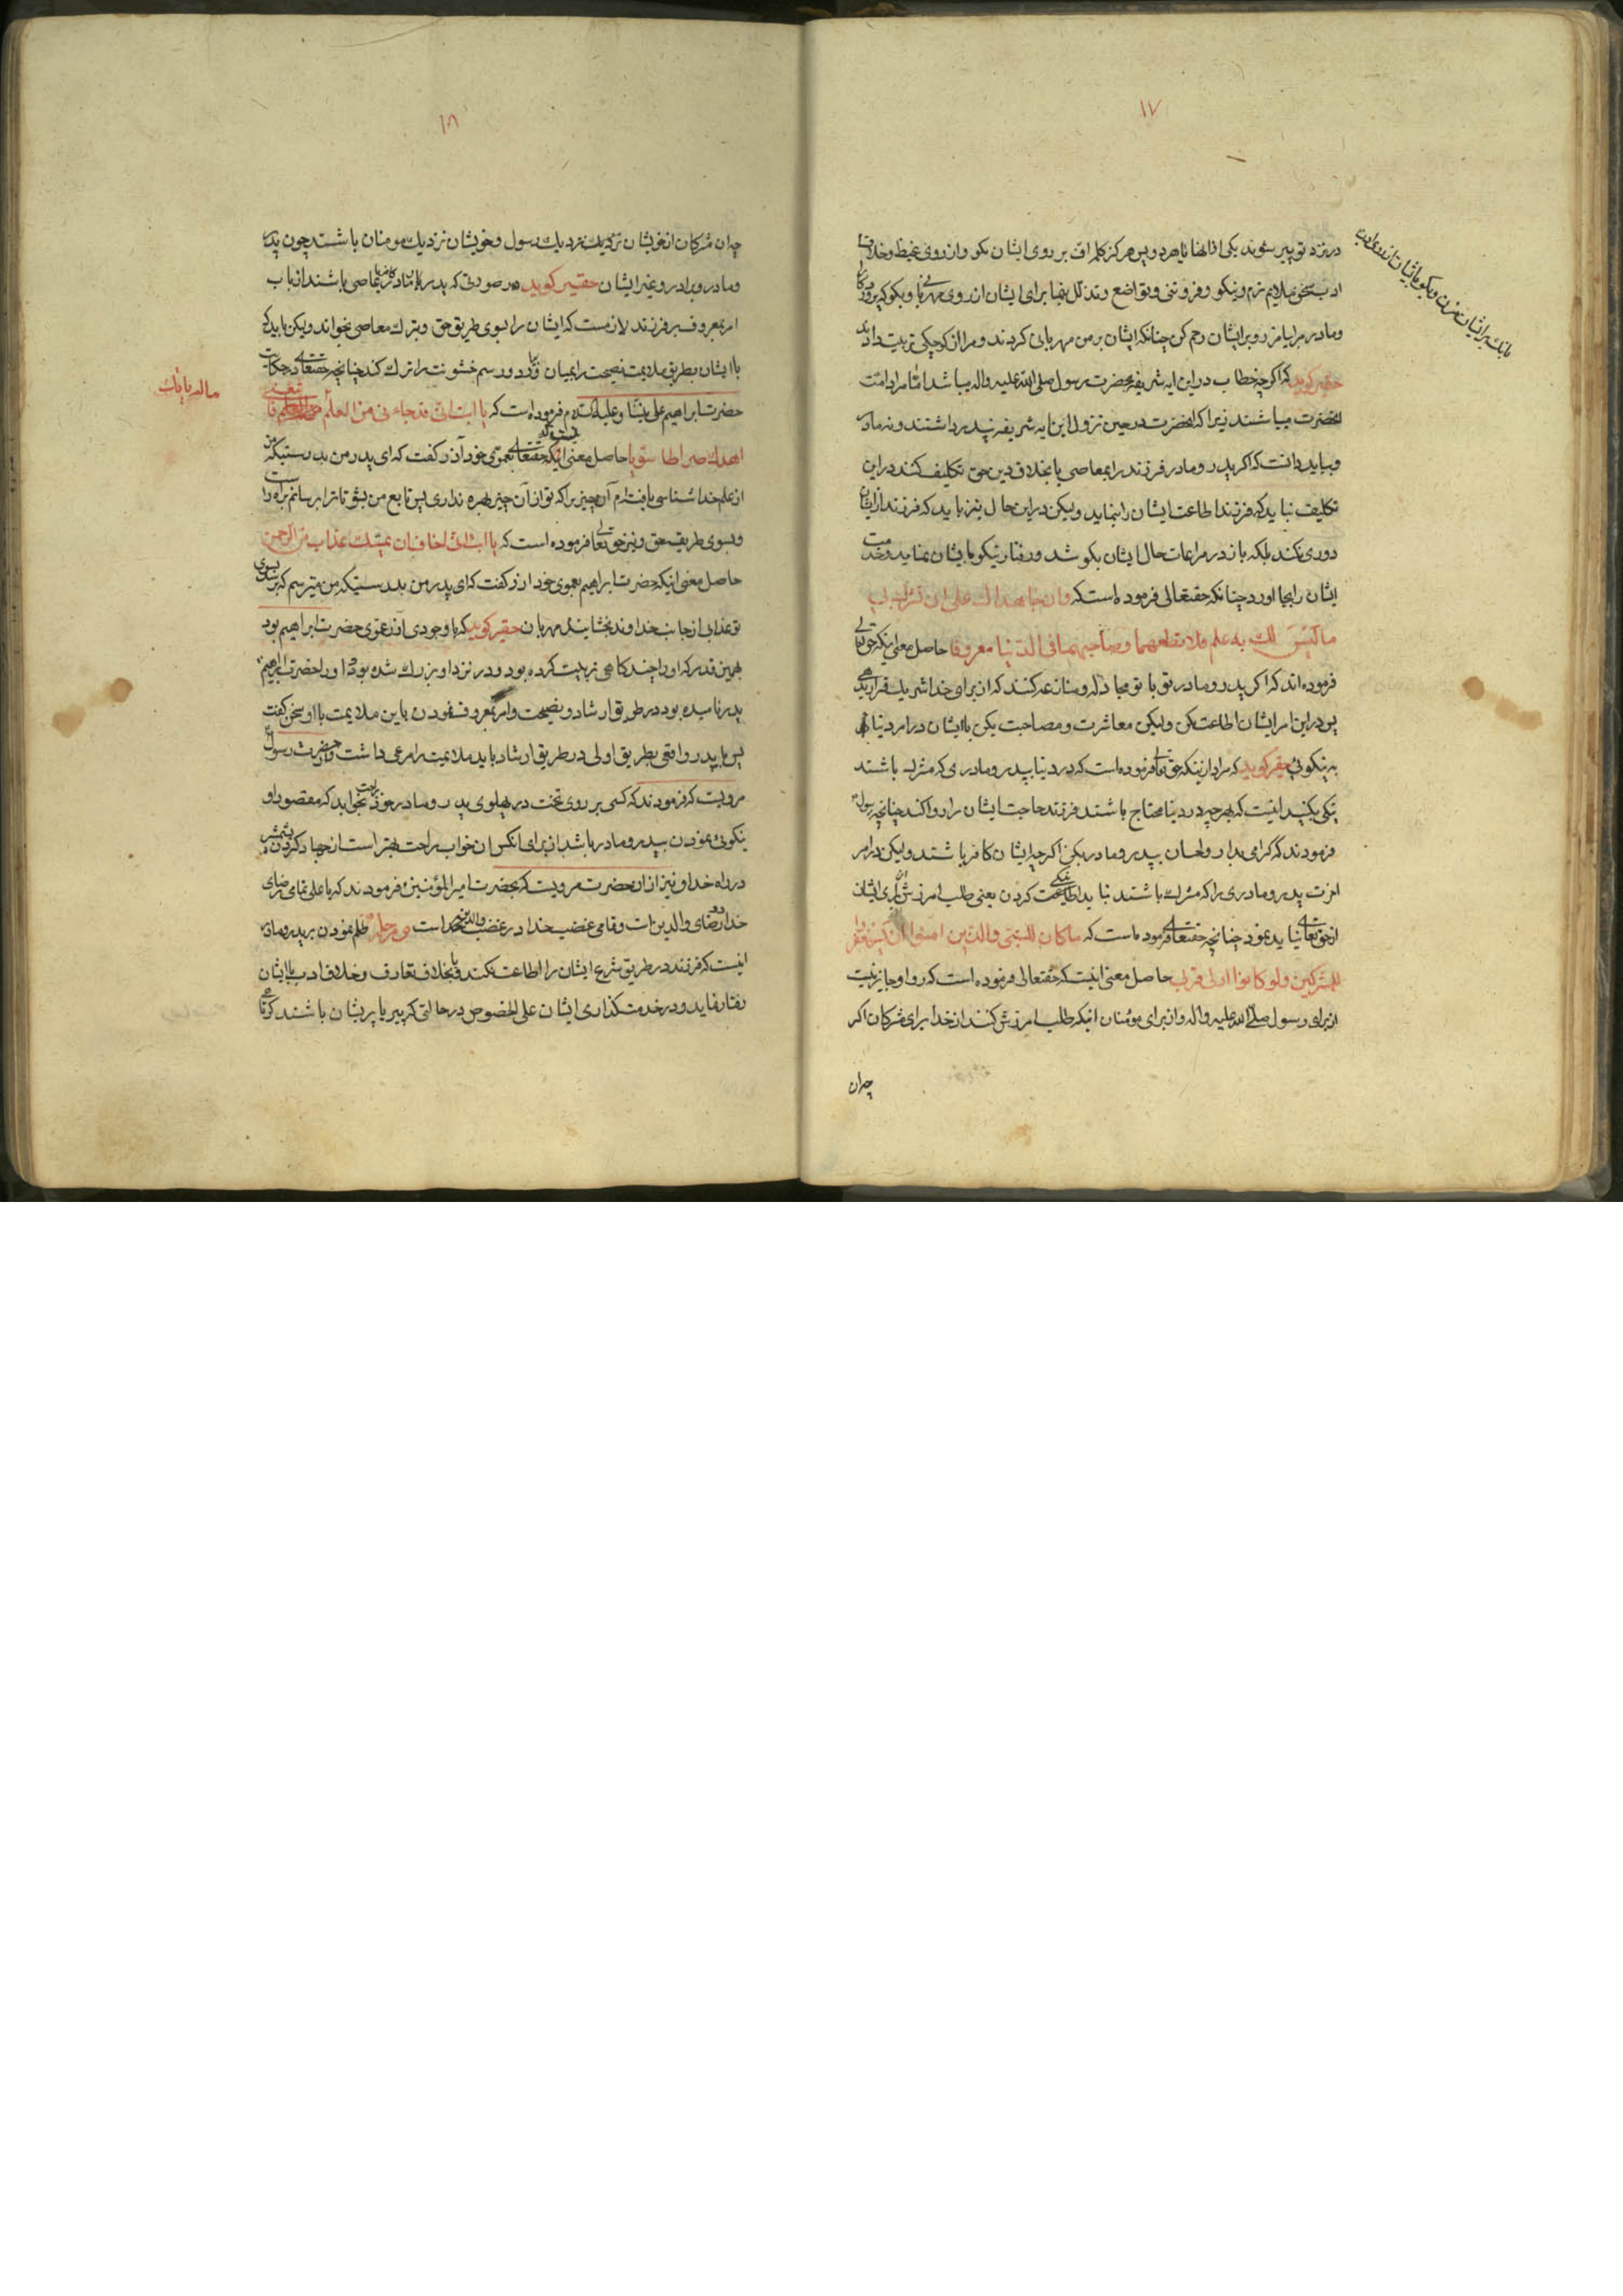 ۱۷
در نزد تو پیر شوند یکی از انها یا هر دو پس هرگز کلمه اف بر روی ایشان مگو و از روی غیظ و خلاف
ادب سخن ملایم نرم و نیکو و فروتنی و تواضع و تذلل بنما برای ایشان از روی مهربانی و بگو که پروردگارا
و مادر مرا بیامرز و بر ایشان رحم کن چنانکه ایشان بر من مهربانی کردند و مرا از کوچکی تربیت دادند
بانک بر ایشان مزن و بگو با ایشان از روی ادب
حقیر کوید که اگر چه خطاب در این ایه شریفه بحضرت رسول صلی الله علیه واله میباشد اما مراد امت
انحضرت میباشند زیرا که انحضرت در حین نزول این ایه شریفه نه پدر داشتند و نه مادر
و بباید دانست که اگر پدر و مادر فرزند را بمعاصی یا بخلاف دین حق تکلیف کنند در این
تکلیف نباید که فرزند اطاعت ایشان را بنماید ولیکن در این حال نیز باید که فرزند از ایشان
دوری نکند بلکه باز در مراعات حال ایشان بکوشد و رفتار نیکو با ایشان بنماید و خدمت
ایشان را بجا اورد چنانکه حقتعالی فرموده است که وان جاهداک علی ان تشرک بی
ما لیس لک به علم فلا تطعهما وصاحبهما فی الدنیا معروفا حاصل معنی اینکه حق تعالی
فرموده اند که اگر پدر و مادر تو با تو مجادله و منازعه کنند که از برای خدا شریک قرار بدهی
پس در این امر ایشان اطاعت مکن ولیکن معاشرت و مصاحبت بکن با ایشان در امر دنیا
به نیکوئی حقیر کوید که مراد از اینکه حق تعالی فرموده است که در دنیا پدر و مادری که مشرک باشند
نیکی بکنید اینست که بهر چه در دنیا محتاج باشند فرزند حاجت ایشان را روا کند چنانچه رسول
فرمودند که گرامی بدار و احسان به پدر و مادر بکن اگر چه ایشان کافر باشند ولیکن در امر
اخرت پدر و مادری را که مشرک باشند نباید کردن یعنی طلب امرزش برای ایشان
از حق تعالی نباید نمود چنانچه حقتعالی فرموده است که ما کان للنبی والذین امنوا ان یستغفروا
للمشرکین ولو کانوا اولی قربی حاصل معنی اینست که حقتعالی فرموده است که روا و جایز نیست
از برای رسول صلی الله علیه واله و از برای مومنان اینکه طلب امرزش کنند از خدا برای مشرکان اگر
چه ان
۱۸
چه ان مشرکان از خویشان نزدیک نزدیک رسول و خویشان نزدیک مومنان باشند چون پدر
و مادر و برادر و غیر ایشان حقیر کوید در صورتی که پدر یا مادر عاصی باشند از باب
امر بمعروف بر فرزند لازمست که ایشان را بسوی طریق حق و بترک معاصی بخواند ولیکن باید که
با ایشان بطریق ملایمت نصیحت را بمیان اورد و رسم خشونت را ترک کند چنانچه حقتعالی در حکایت
حضرت ابراهیم علی نبینا و علیه السلام فرموده است که یا ابت انی قد جاءنی من العلم
ما لم یاتک
فاتبعنی
اهدک صراطا سویا حاصل معنی اینکه بعموی خود آزر گفت که ای پدر من بدرستیکه من
از علم خداشناسی یافته‌ام آن چیز را که تو از آن چیز بهره نداری پس تابع من بشو تا ترا برسانم براه راست
و بسوی طریقه حق و نیز حق تعالی فرموده است که یا ابت انی اخاف ان یمسک عذاب من الرحمن
حاصل معنی اینکه حضرت ابراهیم بعموی خود ازر گفت که ای پدر من بدرستیکه من میترسم که برسد بسوی
تو عذابی از جانب خداوند بخشاینده مهربان حقیر کوید که با وجودی آزر عموی حضرت ابراهیم بود
بهمین قدر که او را چند گاهی تربیت کرده بود و در نزد او بزرک شده بود او را حضرت ابراهیم
پدر نامیده بود در طریق ارشاد و نصیحت و امر بمعروف نمودن باین ملایمت با او سخن گفت
پس با پدر واقعی بطریق اولی در طریق ارشاد باید ملایمت را مرعی داشت و از حضرت رسول
مرویست که فرمودند که کسی بر روی تخت در پهلوی پدر و مادر خود بخوابد که مقصود او
نیکوئی نمودن به پدر و مادر باشد از برای انکس ان خواب راحت بهتر است از جهاد کردن بشمشیر
در راه خدا و نیز از ان حضرت مرویست که بحضرت امیر المؤمنین فرمودند که یا علی تمامی رضای
خدا در رضای والدین است و تمامی غضب خدا در غضب والدین است ظلم نمودن بر پدر و مادر
اینست که فرزند در طریق شرع ایشان را اطاعت نکند و یا بخلاف تعارف و خلاف ادب با ایشان
رفتار نماید و در خدمت گذاری ایشان علی الخصوص در حالتی که پیر یا پریشان باشند کوتاهی